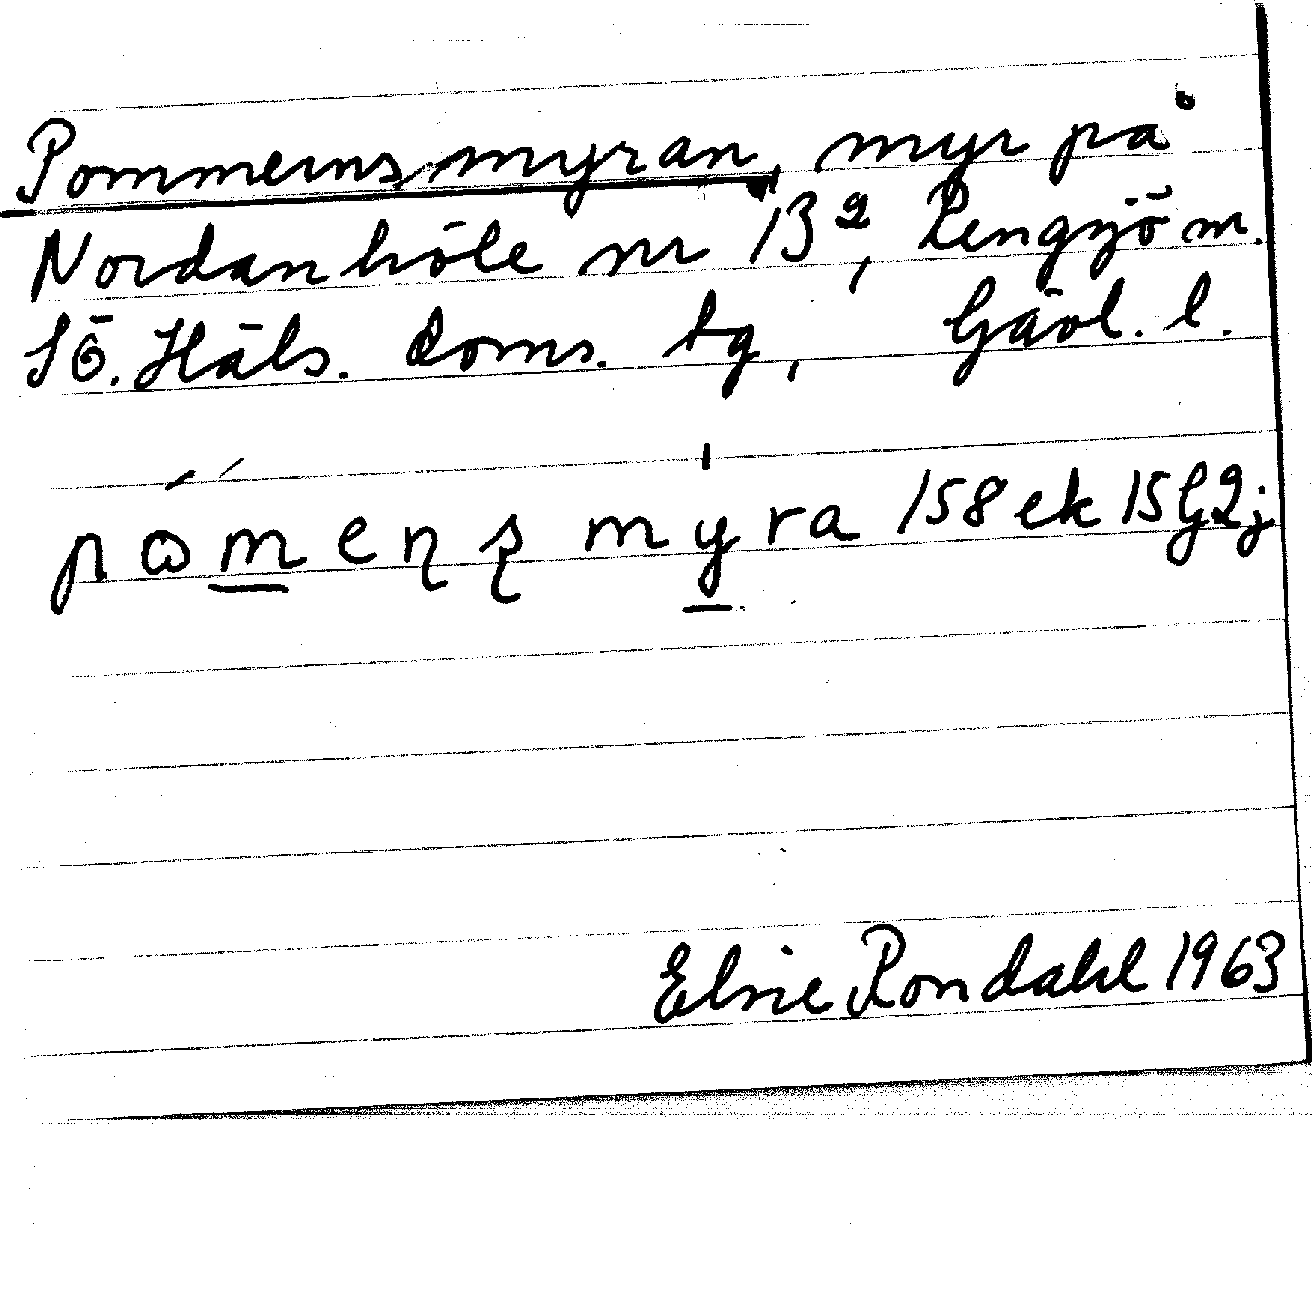 Pommernsmyran, myr på
Nordanhöle nr 13², Rengsjö sn.
Sö. Häls. doms. tg, Gävl. l.
158 ek 15G2j
Elsie Rondahl 1963